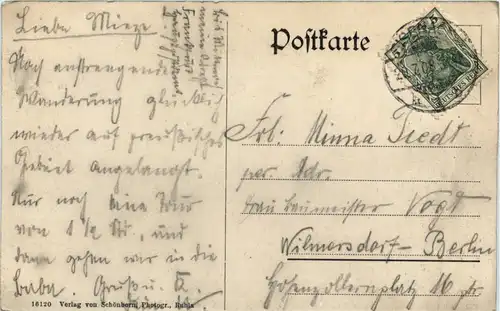 Liebe Mieze
Nach anstrengender
Wanderung glücklich
wieder auf preußisches
Gebiet angelangt.
Nur noch eine Tour
von 1 1/2 St., und
dann gehen wir in die
Baba. Gruß u. K.
bis Mittwoch
meine Adresse
Postkarte
Frl. Minna Tiedt
per Adr.
Frau Baumeister Vogt
Wilmersdorf-Berlin
Hohenzollernplatz 16 ptr
16120 Verlag von Schönborn, Photogr., Ruhla